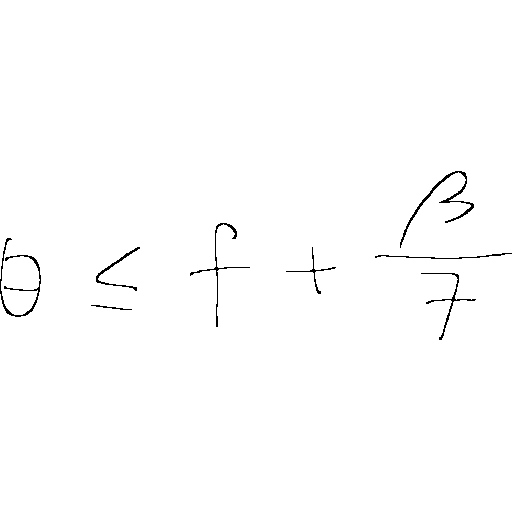 θ ≤ f + β/7